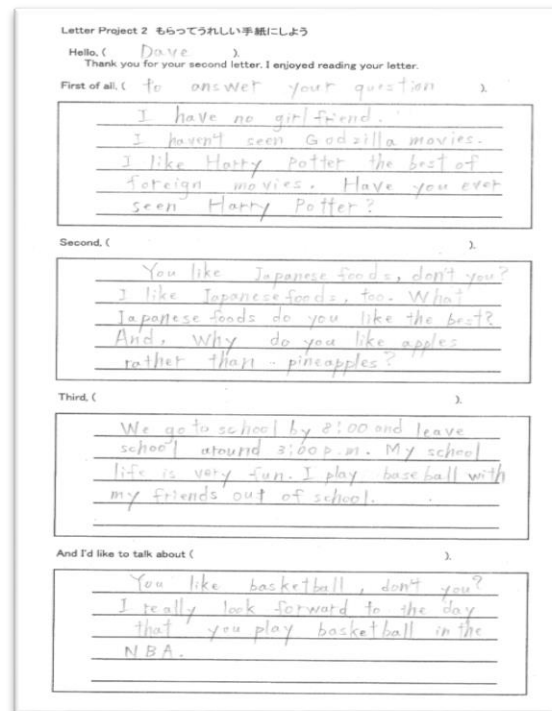 Letter Project 2 もらってうれしい手紙にしよう
Hello, ( Dave ).
Thank you for your second letter. I enjoyed reading your letter.
First of all, ( to answer your question ).
I have no girlfriend.
I haven't seen Godzilla movies.
I like Harry Potter the best of
foreign movies. Have you ever
seen Harry Potter?
Second, ( ).
You like Japanese foods, don't you?
I like Japanese foods, too. What
Japanese foods do you like the best?
And, Why do you like apples
rather than pineapples?
Third, ( ).
We go to school by 8:00 and leave
school around 3:00 p.m. My school
life is very fun. I play baseball with
my friends out of school.
And I'd like to talk about ( ).
You like basketball, don't you?
I really look forward to the day
that you play basketball in the
NBA.